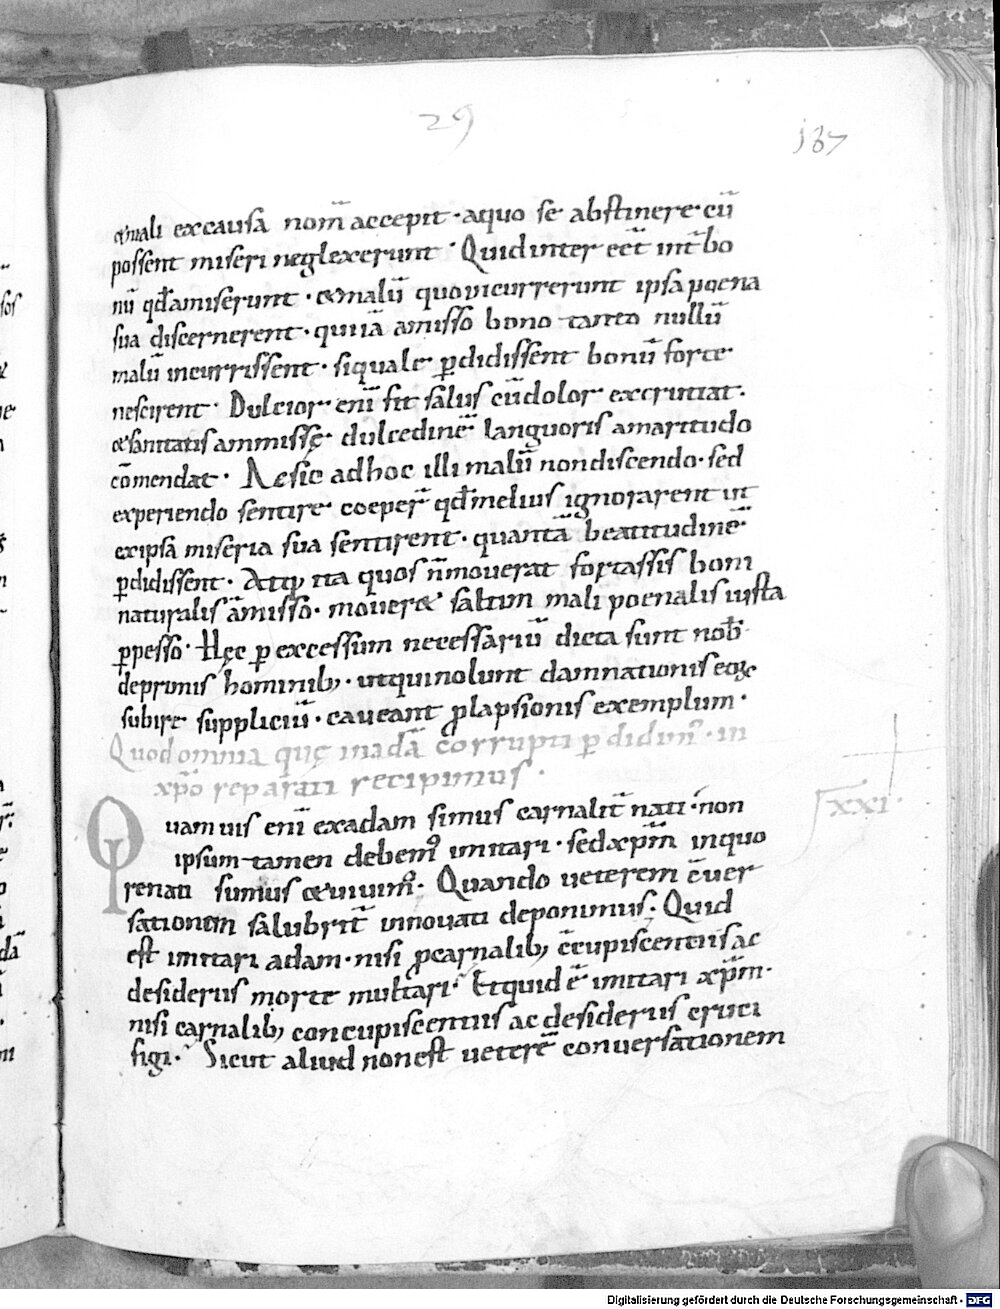 29
137
& mali ex causa nom̄ accepit · a quo se abstinere · cū
possent miseri neglexerunt · Quid inter eēt int̄ bo
nū qđ amiserunt · & malū quo incurrerunt ipsa poena
sua discernerent · qui iā amisso bono tanto nullū
malū incurrissent · si quale p̱didissent bonū forte
nescirent · Dulcior enī fit salus cū dolor excruciat ·
& sanitatis ammissę · dulcedinē languoris amaritudo
cōmendat · Ac sic ad hoc illi malū non discendo · sed
experiendo sentire coeper̄ qđ melius ignorarent ut
ex ipsa miseria sua sentirent · quantā beatitudinē
p̱didissent · Atq; ita quos n̄ mouerat fortassis boni
naturalis amissio · mouer& saltim mali poenalis iusta
p̱pessio · Hęc p̱ excessum necessariū dicta sunt nob̄
de primis hominib; · ut qui nolunt damnationis eoꝝ
subire suppliciū · caueant prolapsionis exemplum ·
Quod omnia quę in adā corrupti p̱didim᷒ · in
xp̄o reparati recipimus ·
XXI ·
Quam uis enī ex adam simus carnalit̄ nati · non
ipsum tamen debem᷒ imitari · sed xp̄m in quo
renati sumus & uiuim᷒ · Quando ueterem cōuer
sationem salubrit̄ innouati deponimus ; Quid
est imitari adam · nisi pro carnalib; cōcupiscentiis ac
desideriis morte multari · Et quid ē imitari xp̄m ·
nisi carnalib; concupiscentiis ac desideriis cruci
figi · Sicut aliud non est ueterē conuersationem
Digitalisierung gefördert durch die Deutsche Forschungsgemeinschaft - DFG